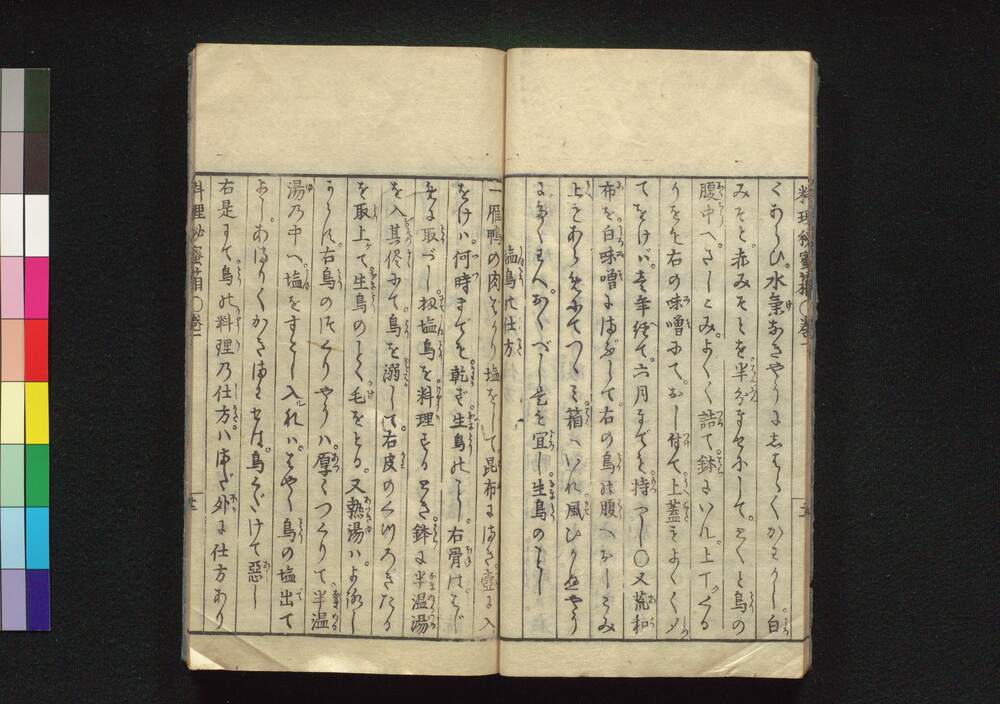 料理秘蜜箱〇巻一
くあらひ。水氣なきやうにしばらくかわかし。白
みそと。赤みそとを。半分まぜにして。とくと鳥の
腹中へ。さしこみ。よく〱詰て。鉢にいれ。上下
右の味噌にて。おし付て。上蓋をよく〱
てをけば。壱年経て。六月までも。持つべし〇又荒和
布を。白味噌にまぶして。右の鳥の腹へおしこみ
上を
つゝみ。箱へいれ風ひかぬやう
にして
おくべし。是も宜し。生鳥のごとし
塩鳥の仕方
一雁鴨の肉
塩をして。昆布にまき。壺に入
をけば。何時までも。乾ず生鳥のごとし。右骨は
取べし。扨塩鳥を料理するとき。鉢に半温湯
を入其侭にて鳥を溺して。右皮のくつろぎたる
を取上て生鳥のごとく毛をとる。又熱湯は。よろし
からず。右鳥のつくりやうは。厚くつくりて。半温
湯乃中へ。塩をすこし入れば。はやく鳥の塩出て
よし。あまりくかきまはせば。鳥くだけて惡し
右是まで。鳥の料理乃仕方。はまだ外に仕方あり
料理秘蜜箱〇巻一